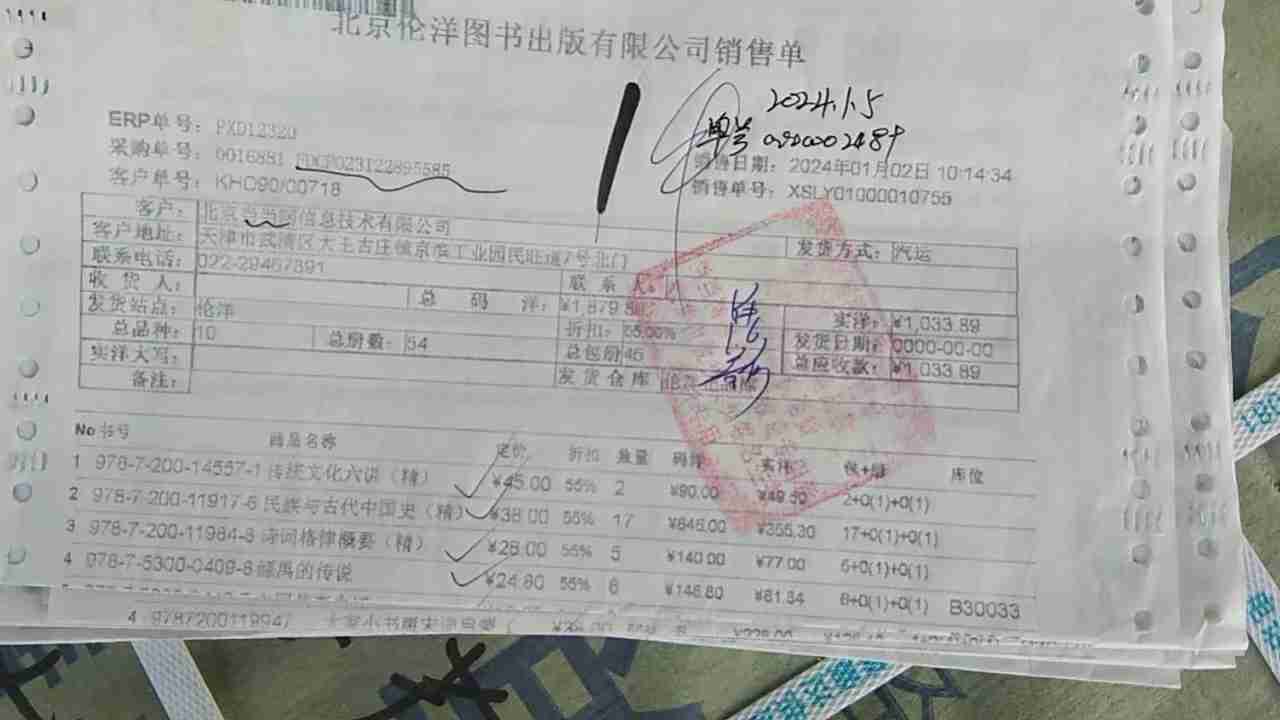 北京伦洋图书出版有限公司销售单
2024.1.5
ERP单号: PXD12320
单号
采购单号: 0016881
销售日期: 2024年01月02日 10:14:34
客户单号: KHD90/00718
销售单号: XSLY01000010755
客户: 北京当当网信息技术有限公司
发货方式: 汽运
客户地址: 天津市武清区大王古庄镇京滨工业园民旺道7号北门
联系电话: 022-29467891
收货人:
联系人:
发货站点: 伦洋
总码洋: ¥1,879.80
实洋: ¥1,033.89
总品种: 10
总册数: 54
折扣: 55.00%
发货日期: 0000-00-00
实洋大写:
总包册 45
总应收款: ¥1,033.89
备注:
发货仓库
No 书号 商品名称 定价 折扣 数量 码洋 实洋 包+册 库位
1 978-7-200-14557-1 传统文化六讲（精） ¥45.00 55% 2 ¥90.00 ¥49.50 2+0(1)+0(1)
2 978-7-200-11917-6 民族与古代中国史（精） ¥38.00 55% 17 ¥646.00 ¥355.30 17+0(1)+0(1)
3 978-7-200-11984-8 诗词格律概要（精） ¥28.00 55% 5 ¥140.00 ¥77.00 5+0(1)+0(1)
4 978-7-5300-0409-8 的传说 ¥24.80 55% 6 6+0(1)+0(1) B30033
4 9787200119947